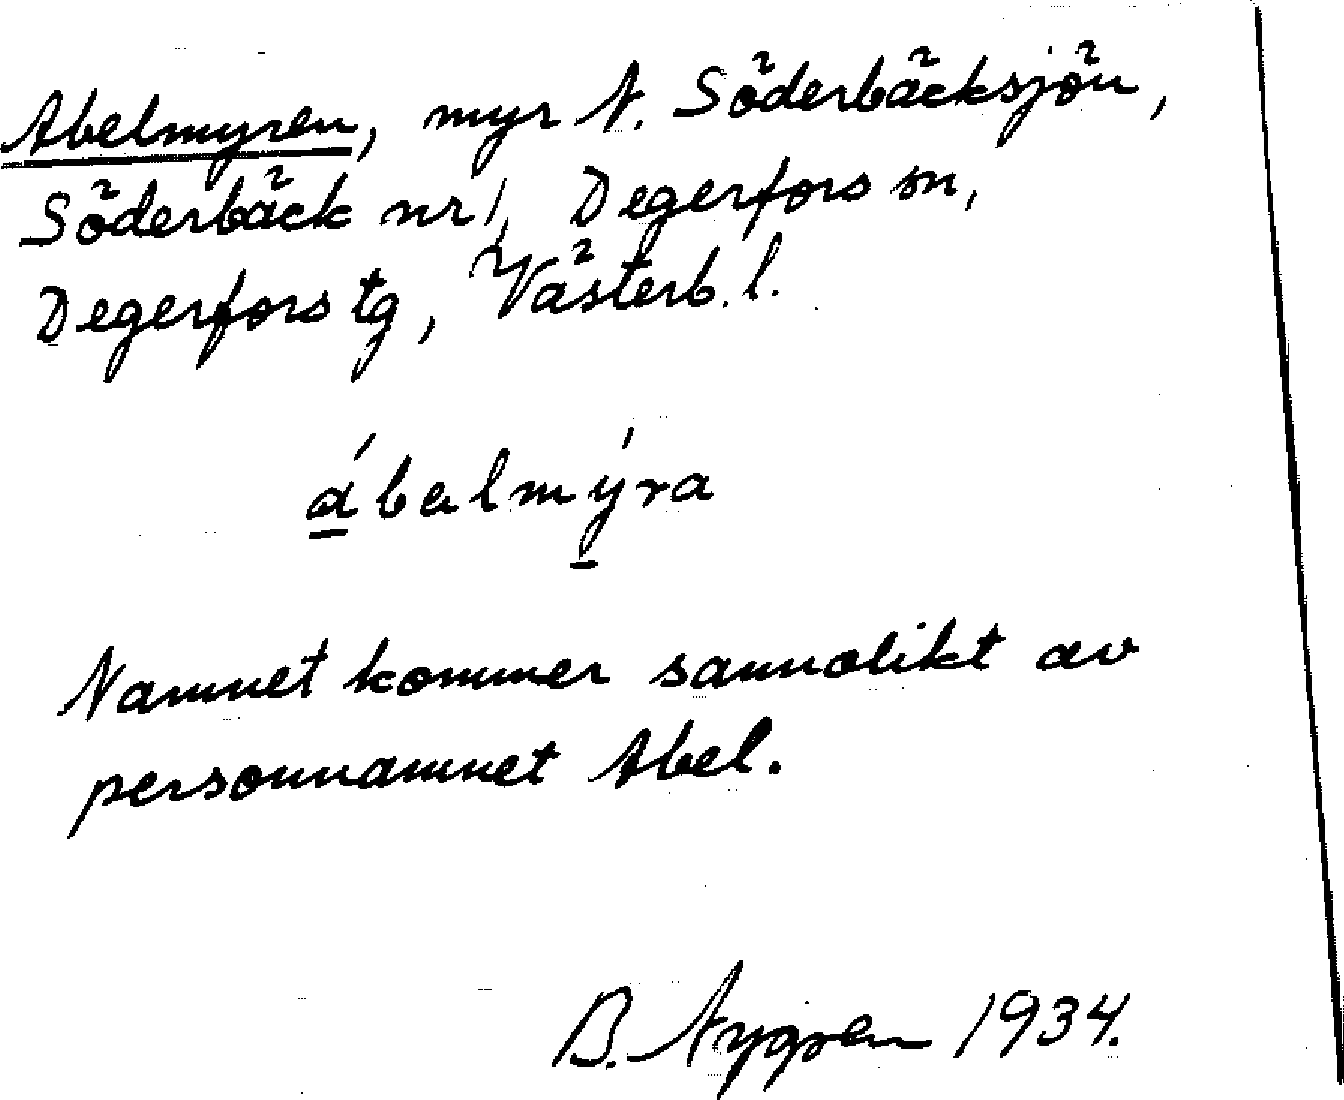 Abelmyren, myr N. Söderbäcksjön,
Söderbäck nr 1, Degerfors sn,
Degerfors tg, Västerb. l.
ábalmýra
Namnet kommer sannolikt av
personnamnet Abel.
B. Nygren 1934.